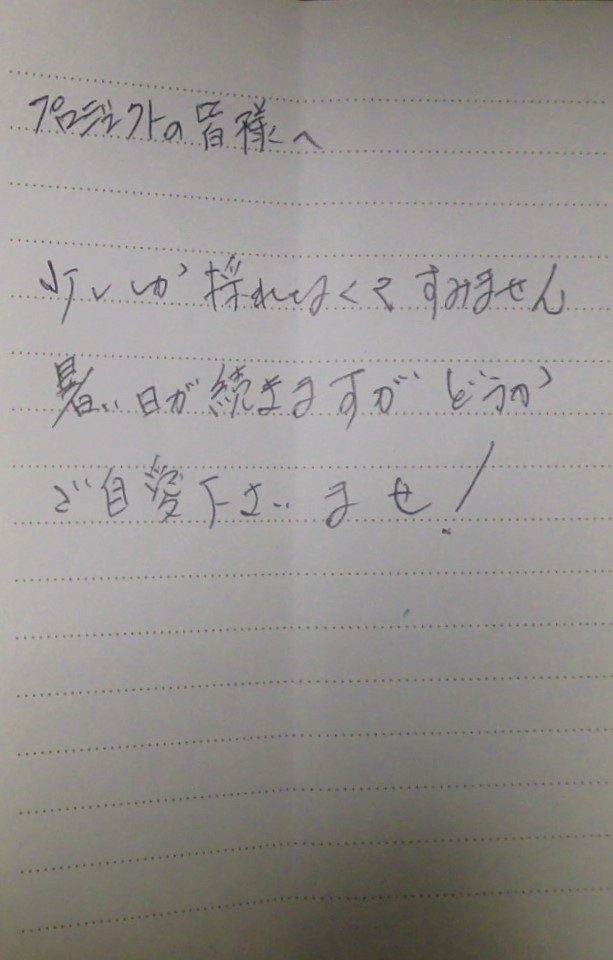 プロジェクトの皆様へ
少ししか採れなくてすみません
暑い日が続きますがどうか
ご自愛下さいませ!